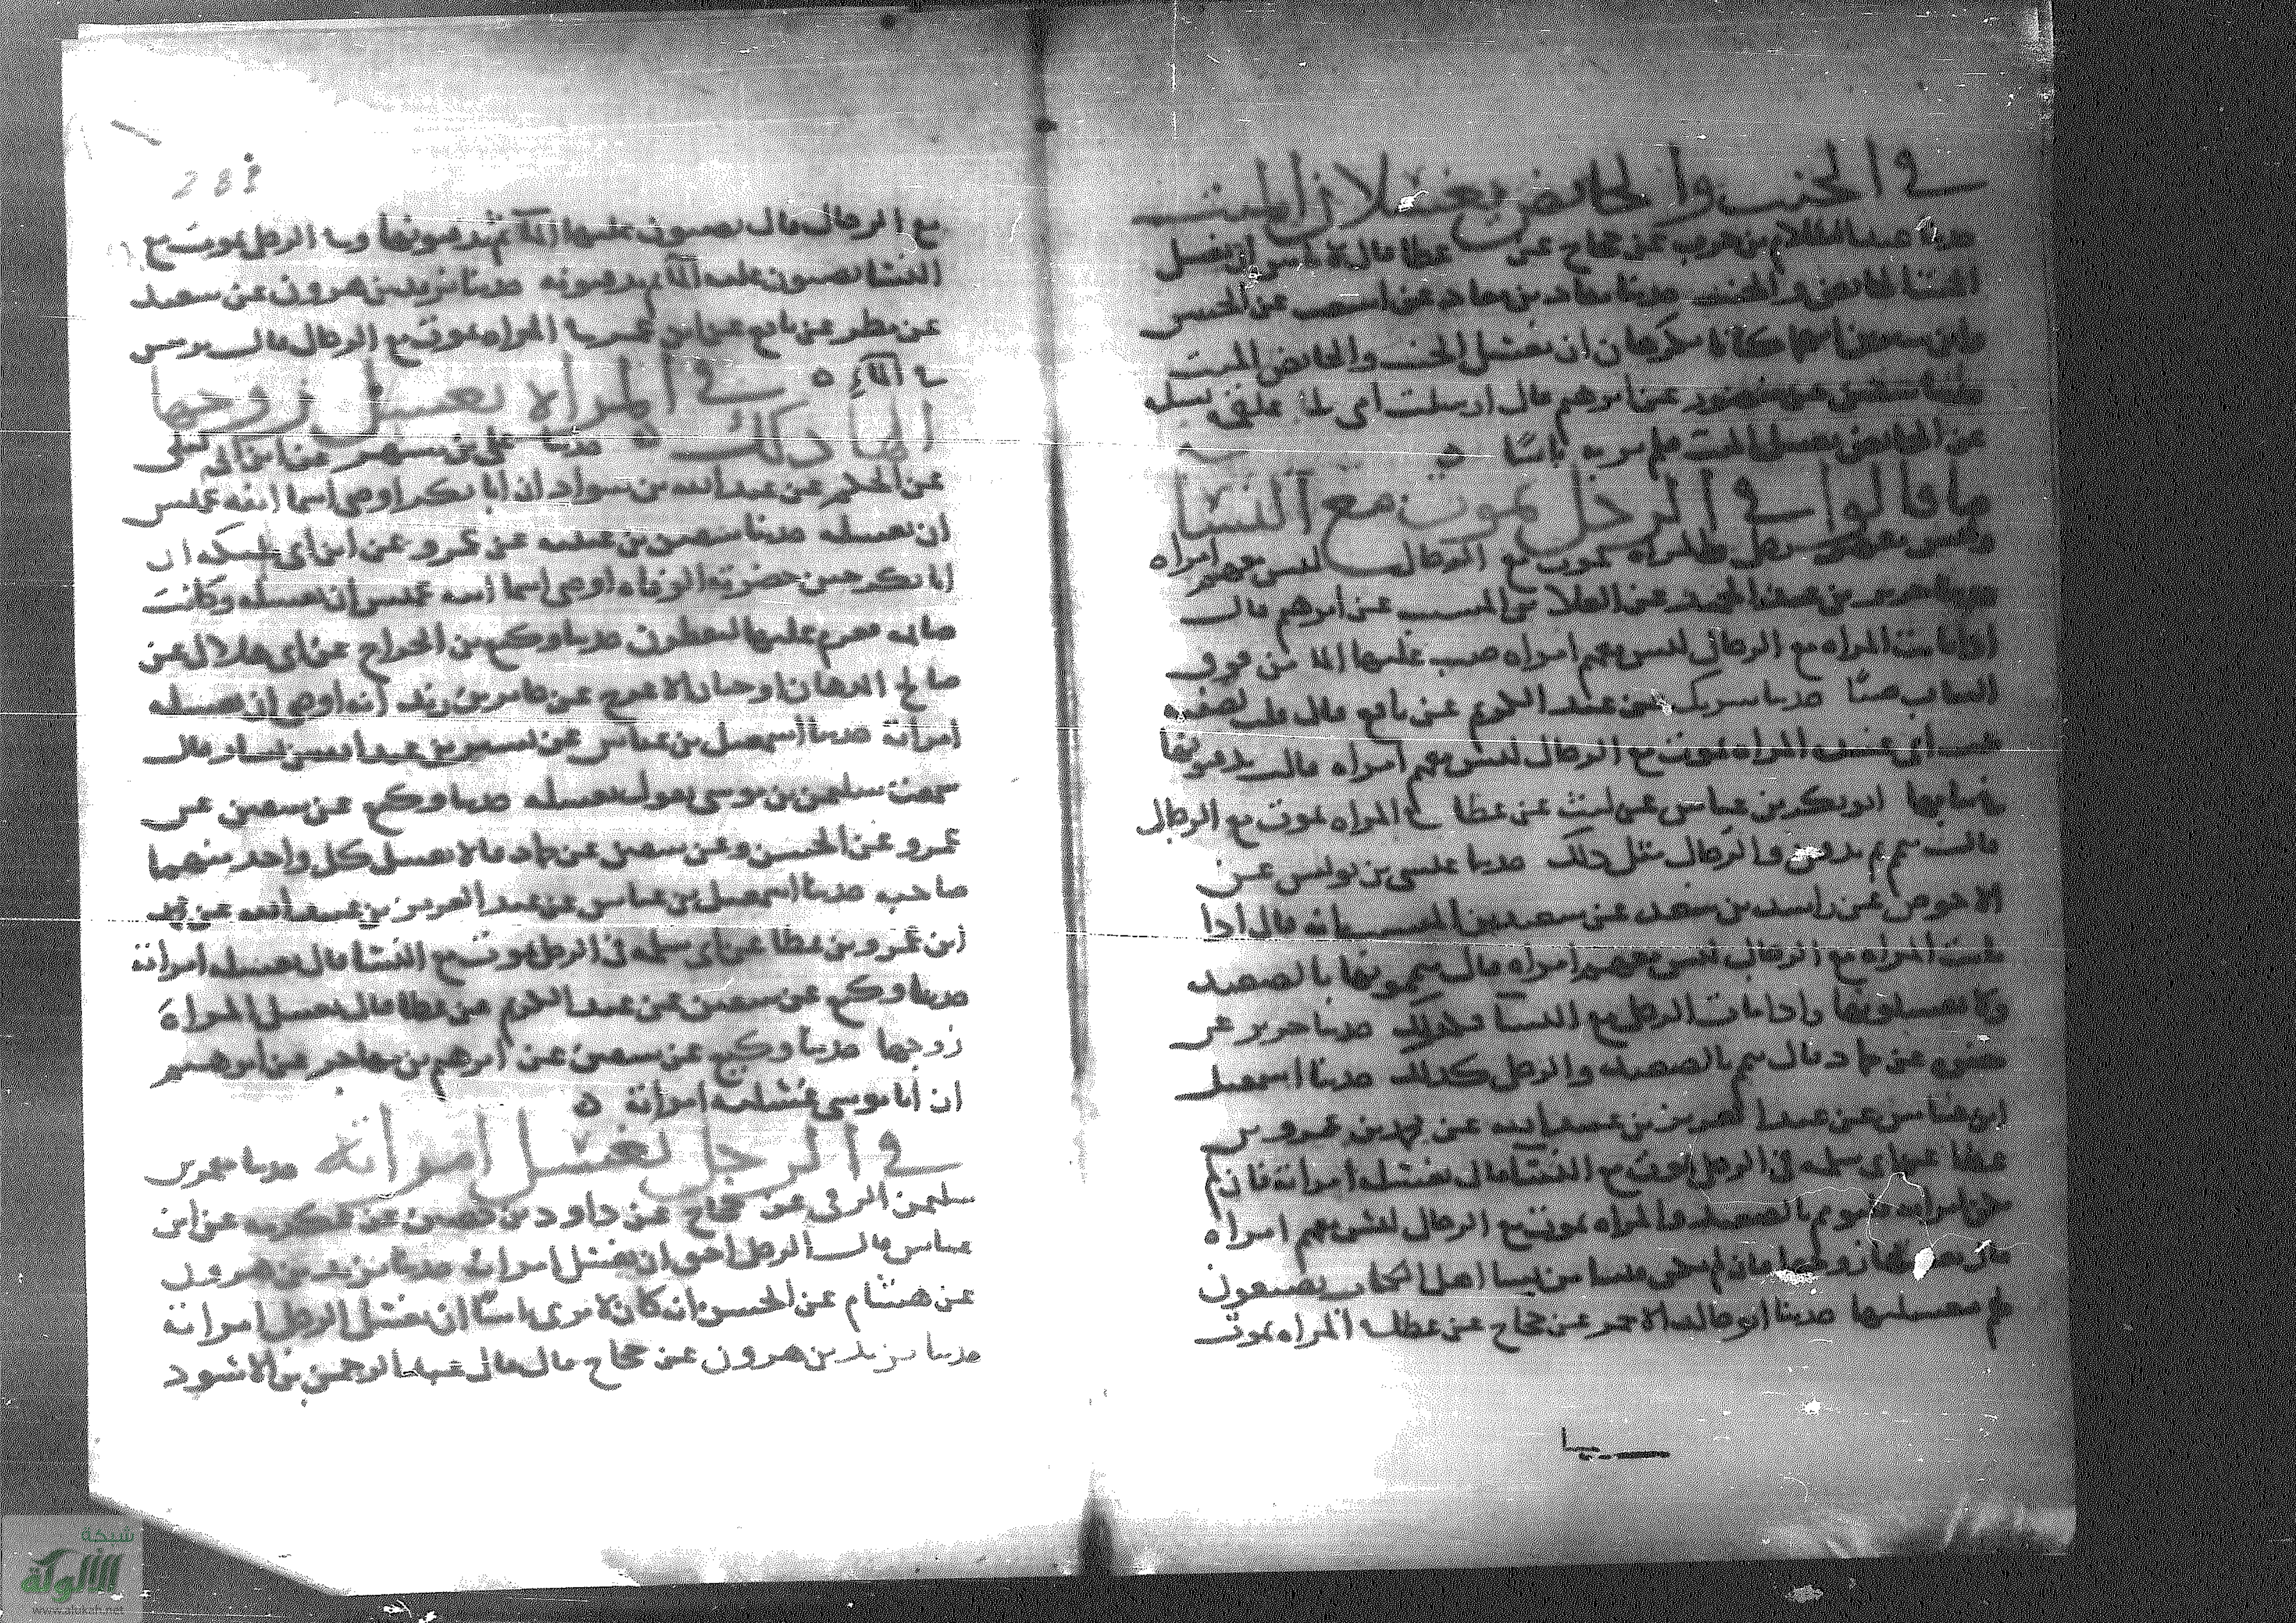 في الجنب والحائض يغسلان الميت
حدثنا عبد السلام بن حرب عن حجاج عن عطا قال لا باس ان يغسل
الميت الحائض والجنب حدثنا معاذ بن معاذ عن اشعث عن الحسن
وابن سيرين انهما كانا يكرهان ان يغسل الجنب والحائض الميت
عن منصور عن ابرهيم قال ارسلت امي الى علقمه تسله
عن الحائض يغسل الميت فلم ير به باسًا ه
ما قالوا في الرجل يموت مع النسا
وليس معهن رجل والمراه تموت مع الرجال ليس معهم امراه
جرير بن عبد الحميد عن العلا بن المسيب عن ابرهيم قال
اذا ماتت المراه مع الرجال ليس معهم امراه صب عليها الما من فوق
الثياب صبًا حدثنا شريك عن عبد الكريم عن نافع قال قلت لصفيه
بنت ابي عبيد المراه تموت مع الرجال ليس معهم امراه قالت يدفنونها
في ثيابها ابو بكر بن عياش عن ليث عن عطا في المراه تموت مع الرجال
قال تيمم ثم تدفن والرجال مثل ذلك حدثنا عيسى بن يونس عن
الاحوص عن راشد بن سعد عن سعيد بن المسيب انه قال اذا
ماتت المراه مع الرجال ليس معهم امراه قال ييممونها بالصعيد
ولا يغسلونها واذا مات الرجل مع النسا فكذلك حدثنا جرير عن
عن حماد قال تيمم بالصعيد والرجل كذلك حدثنا اسمعيل
ابن عياش عن عبد العزيز بن عبيد الله عن محمد بن عمرو بن
عطا عن ابي سلمه في الرجل يموت مع النسا قال تغسله امراته فان لم
تكن امراته فييمم بالصعيد والمراه تموت مع الرجال ليس معهم امراه
قال يغسلها زوجها فان لم يكن من نسا اهل الكتاب يصببون
لم يغسلنها حدثنا ابو خالد الاحمر عن حجاج عن عطا في المراه تموت
مع الرجال قال يصبون عليها الما ثم يدفنونها وفي الرجل يموت مع
النسا يصبون عليه الما ثم يدفنونه حدثنا يزيد بن هرون عن سعيد
عن مطر عن نافع عن ابن عمر في المراه تموت مع الرجال قال ترمس
في الما ه في المراه تغسل زوجها
الها ذلك ه حدثنا علي بن مسهر عن ابن ابي ليلى
عن الحكم عن عبد الله بن شداد ان ابا بكر اوصى اسما ابنه عميس
ان تغسله حدثنا سفين بن عيينه عن عمرو عن ابن ابي مليكه ان
ابا بكر حين حضرته الوفاه اوصى اسما ابنه عميس ان تغسله وكانت
صائمه فعزم عليها لتفطرن حدثنا وكيع بن الجراح عن ابي هلال عن
صالح الدهان او حيان الاعرج عن جابر بن زيد انه اوصى ان تغسله
امراته حدثنا اسمعيل بن عياش عن شعيب بن عبد الله بن يسار قال
سمعت سليمن بن موسى يقول تغسله حدثنا وكيع عن سفين عن
عمرو عن الحسن وعن سفين عن حماد قالا يغسل كل واحد منهما
صاحبه حدثنا اسمعيل بن عياش عن عبد العزيز بن عبيد الله عن محمد
ابن عمرو بن عطا عن ابي سلمه في الرجل يموت مع النسا قال تغسله امراته
حدثنا وكيع عن سفين عن عبد الكريم عن عطا قال تغسل المراة
زوجها حدثنا وكيع عن سفين عن ابرهيم بن مهاجر عن ابرهيم
ان ابا موسى غسلته امراته ه
في الرجل يغسل امراته حدثنا معمر بن
سليمن الرقي عن حجاج عن داود بن حصين عن عكرمه عن ابن
عباس قال الرجل احق ان يغسل امراته حدثنا يزيد بن هرون
عن هشام عن الحسن انه كان لا يرى باسًا ان يغسل الرجل امراته
حدثنا يزيد بن هرون عن حجاج قال قال عبد الرحمن بن الاسود
281
شبكة
الألوكة
www.alukah.net